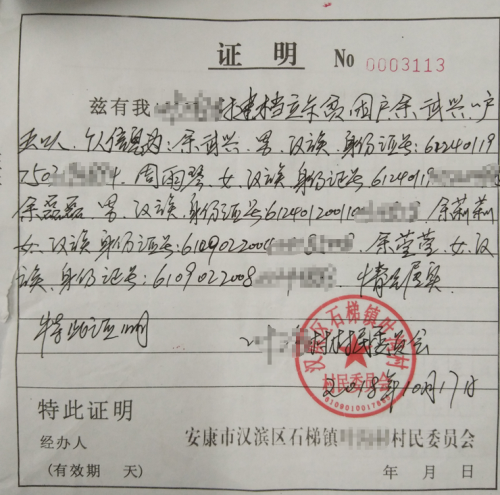 证 明 No 0003113
兹有我村建档立卡贫困户余武兴,户
五口人.个人信息为:余武兴.男.汉族.身份证号:61240119
7503.周雨琴.女.汉族.身份证号61240119
余磊磊.男.汉族.身份证号612401200110 余莉莉
女.汉族.身份证号:6109022004 余莹莹.女.汉
族.身份证号:6109022008.情况属实
特此证明
村村民委员会
2018年10月17日
汉滨区石梯镇
村
村民委员会
特此证明
经办人 安康市汉滨区石梯镇 村民委员会
(有效期 天) 年 月 日